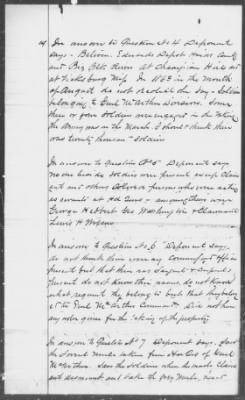 In answer to Question No 4 Deponent
says - Between Edwards Depot Hinds County
and Big Black River at Champion Hill and
at Vicksburg Miss In 1863 in the month
of August do not recollect the day - Soldiers
belonging to Genl McArthur Division. Some
three or four Soldiers were engaged in the taking
the Army was on the March. I should think there
was twenty thousand Soldiers
In answer to Question No 5 Deponent says
no one besides Soldiers were present except Claim
ant and others Colored persons who were acting
as servants at Hd Qrs - among them were
George Washington
Lewis
In answer to Question No 6 Deponent says
do not think there were any Commissioned Officers
present but that there was Sargent & Corporals
present do not know their names, do not know
what regiment they belong to but that they belong
ed to Genl McArthur Command. Did not hear
any order given for the taking of the property
In answer to Question No 7 Deponent says. Saw
the Sorrel Mule taken from Hd Qrs of Genl
McArthur. Saw the Soldiers when they made Claim
ant dismount and take the Grey Mule,